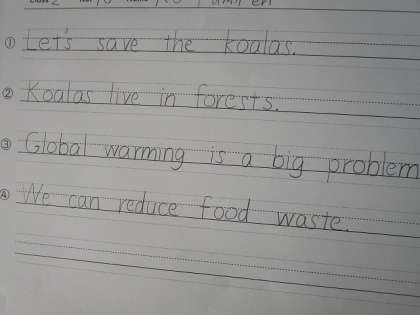 ① Let's save the koalas.
② Koalas live in forests.
③ Global warming is a big problem
④ We can reduce food waste.